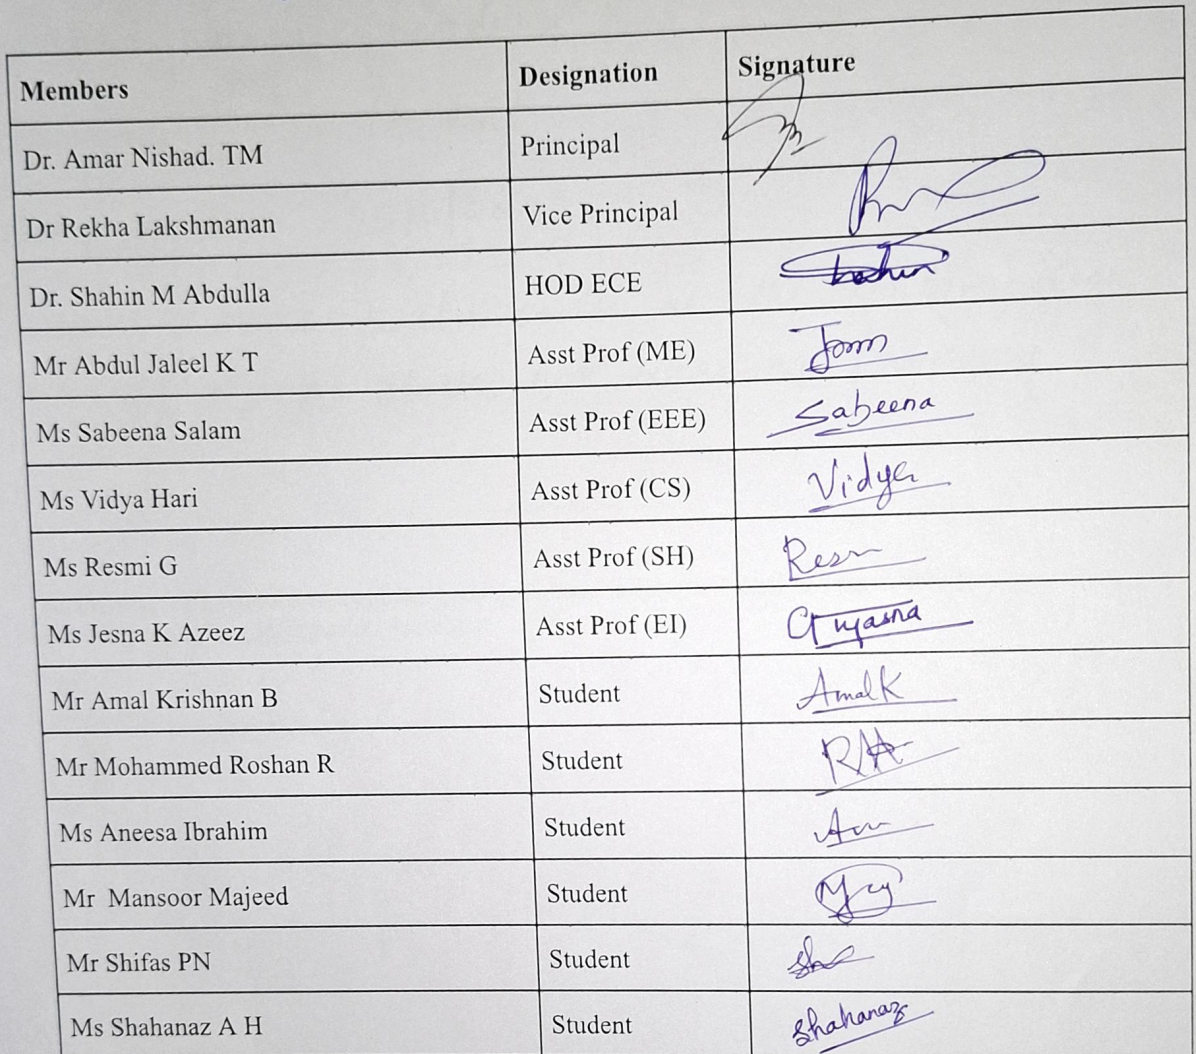 Members Designation Signature
Dr. Amar Nishad. TM Principal
Dr Rekha Lakshmanan Vice Principal
Dr. Shahin M Abdulla HOD ECE
Mr Abdul Jaleel K T Asst Prof (ME)
Ms Sabeena Salam Asst Prof (EEE) Sabeena
Ms Vidya Hari Asst Prof (CS) Vidya
Ms Resmi G Asst Prof (SH)
Ms Jesna K Azeez Asst Prof (EI)
Mr Amal Krishnan B Student Amal K
Mr Mohammed Roshan R Student
Ms Aneesa Ibrahim Student
Mr Mansoor Majeed Student
Mr Shifas PN Student
Ms Shahanaz A H Student Shahanaz